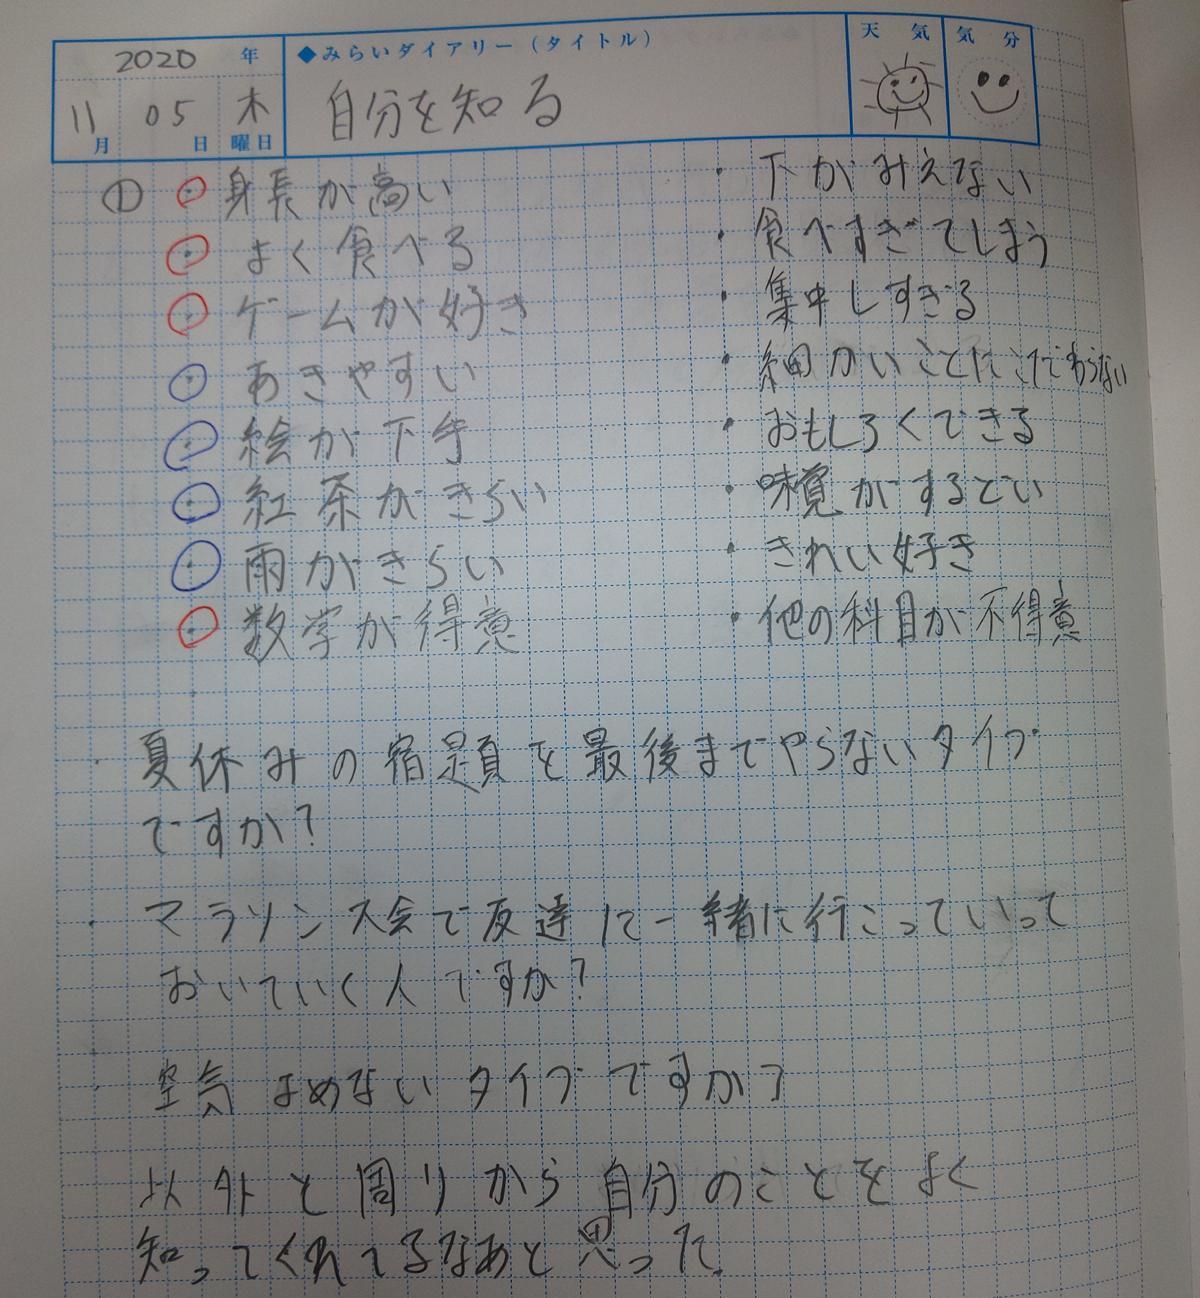 2020 年 ◆みらいダイアリー（タイトル） 天気 気分
11月 05日 木曜日 自分を知る
① ・身長が高い ・下がみえない
・よく食べる ・食べすぎてしまう
・ゲームが好き ・集中しすぎる
・あきやすい ・細かいことにこだわらない
・絵が下手 ・おもしろくできる
・紅茶がきらい ・味覚がするどい
・雨がきらい ・きれい好き
・数学が得意 ・他の科目が不得意
・夏休みの宿題を最後までやらないタイプ
ですか?
・マラソン大会で友達に一緒に行こっていって
おいていく人ですか?
・空気よめないタイプですか?
以外と周りから自分のことをよく
知ってくれてるなあと思った。